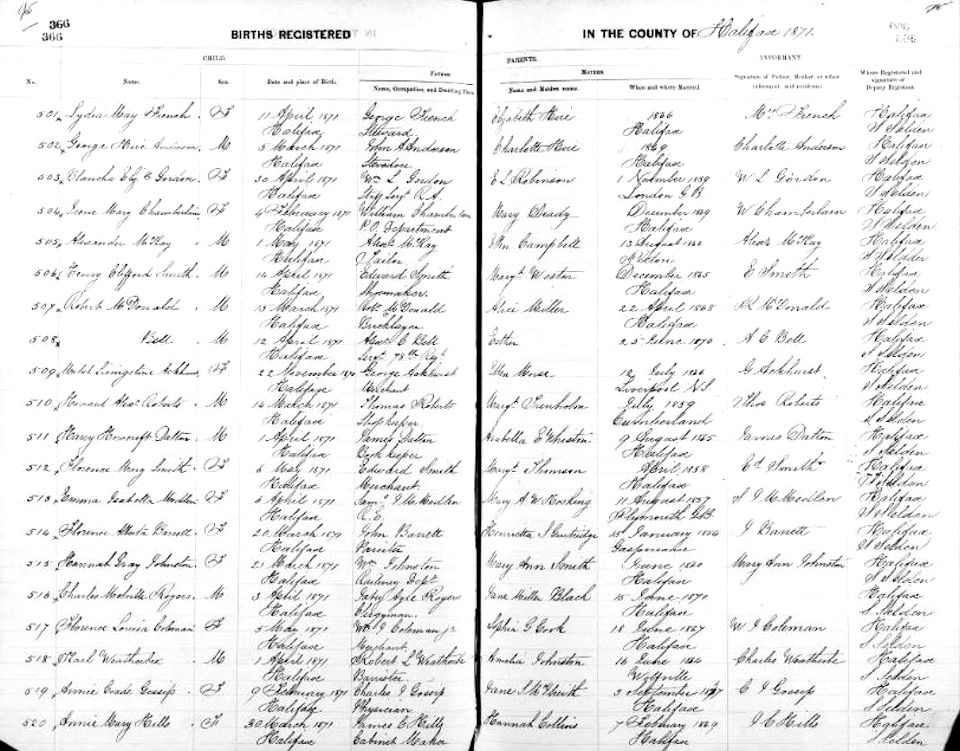 366
366
BIRTHS REGISTERED IN THE COUNTY OF Halifax 1871.
CHILD. PARENTS. INFORMANT
Father Mother
No. Name. Sex. Date and place of Birth. Name, Occupation, and Dwelling Place Name and Maiden name. When and where Married. Signature of Father, Mother, or other informant, and residence Where Registered and signature of Deputy Registrar
501 Lydia May French F 11 April 1871 George French Elizabeth Hire 1866 French Halifax
Halifax Steward Halifax S Selden
502 George Hire Anderson M 5 March 1871 John A Anderson Charlotte Hire 1869 Charlotte Anderson Halifax
Halifax Stevedore Halifax S Selden
503 Gordon F 30 April 1871 Wm L Gordon E L Robinson 1 November 1859 W L Gordon Halifax
Halifax Staff Sergt R.A. London G B S Selden
504 Irene Mary Chamberlain F 4 February 1871 William Chamberlain Mary December W Chamberlain Halifax
Halifax P.O. Department Halifax S Selden
505 Alexander McKay M 1 May 1871 Alexr McKay Ellen Campbell 13 August Alexr McKay Halifax
Halifax Tailor Pictou S Selden
506 Henry Clifford Smith M 14 April 1871 Edward Smith Margt Weston December 1865 E Smith Halifax
Halifax Shoemaker Halifax S Selden
507 Robert McDonald M 15 March 1871 Robt McDonald Alice Miller 22 April 1868 R McDonald Halifax
Halifax Bricklayer Halifax S Selden
508 Bell M 12 April 1871 Alexr E Bell Esther 25 June 1870 A E Bell Halifax
Halifax Sergt 78th Regt S Selden
509 Livingstone 22 November George Ackhurst Ellen Morse 12 July G Ackhurst Halifax
Halifax Merchant Liverpool N.S. S Selden
510 Howard Alexr Roberts M 14 March 1871 Thomas Roberts Margt Trenholm July 1859 Thos Roberts Halifax
Halifax Shopkeeper Cumberland S Selden
511 Harry Dutton M 1 April 1871 James Dutton Arabella E Whiston 9 August 1865 James Dutton Halifax
Halifax Book keeper Halifax S Selden
512 Florence Mary Smith F 6 May 1871 Edward Smith Margt Thomson April 1858 Ed Smith Halifax
Halifax Merchant Halifax S Selden
513 Emma Isabella Medlen F 6 April 1871 Saml J M Medlen Mary A W Hosking 11 August 1857 S J M Medlen Halifax
Halifax R.E. Plymouth G.B. S Selden
514 Florence Alberta Barrett F 20 March 1871 John Barrett Henrietta S 15 January J Barrett Halifax
Halifax Painter S Selden
515 Hannah Gray Johnston F 21 March 1871 Wm Johnston Mary Ann Smith June Mary Ann Johnston Halifax
Halifax Railway Dept Halifax S Selden
516 Charles Melville Rogers M 3 April 1871 Jane Miller Black 15 June 1870 Halifax
Halifax Clergyman Halifax S Selden
517 Florence Louisa Coleman F 5 May 1871 Wm J Coleman jr Sophia G Cook 18 June 1867 W J Coleman Halifax
Halifax Merchant Halifax S Selden
518 Karl Weatherbe M 1 April 1871 Robert L Weatherbe Amelia Johnston 16 June Charles Weatherbe Halifax
Halifax Barrister Wolfville S Selden
519 Annie Gossip F 9 February 1871 Charles J Gossip Jane S 3 September C J Gossip Halifax
Halifax Physician Halifax S Selden
520 Annie Mary Hills F 30 March 1871 James E Hills Hannah Collins 7 February 1869 J E Hills Halifax
Halifax Cabinet Maker Halifax S Selden